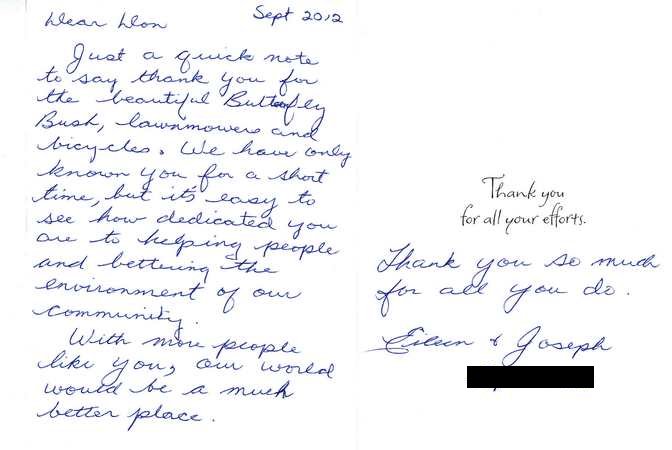 Sept 2012
Dear Don
Just a quick note
to say thank you for
the beautiful Butterfly
Bush, lawnmowers and
bicycles. We have only
known you for a short
time, but it's easy to
see how dedicated you
are to helping people
and bettering the
environment of our
community.
With more people
like you, our world
would be a much
better place.
Thank you
for all your efforts.
Thank you so much
for all you do.
Eileen & Joseph